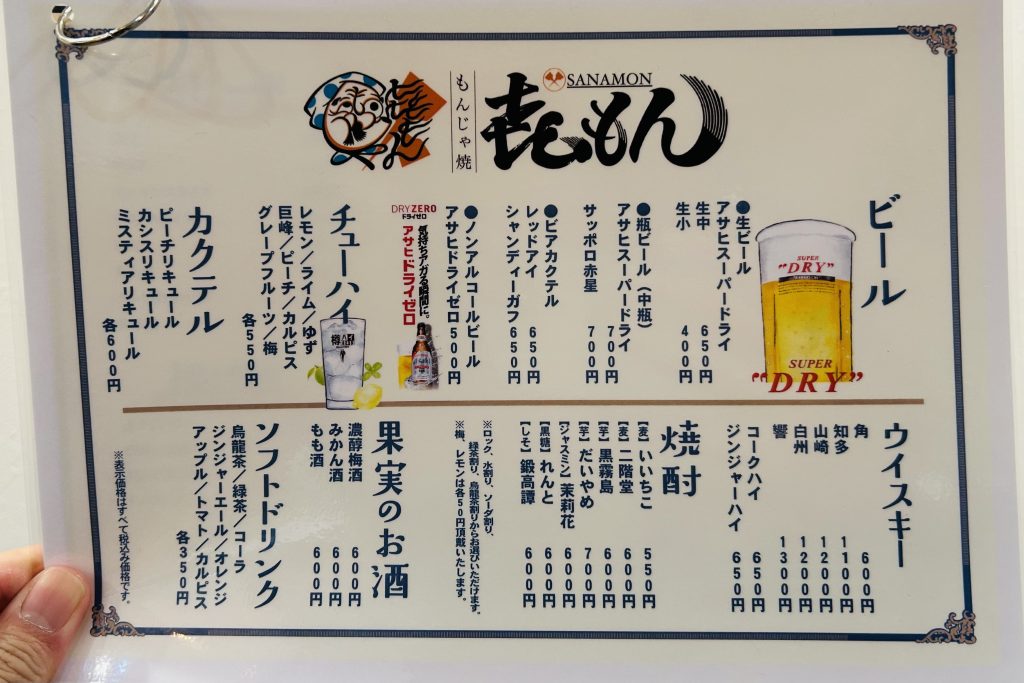 SANAMON
㐂もん
もんじゃ焼
ビール
●生ビール
アサヒスーパードライ
生中 650円
生小 400円
●瓶ビール（中瓶）
アサヒスーパードライ 700円
サッポロ赤星 700円
●ビアカクテル
レッドアイ 650円
シャンディーガフ 650円
●ノンアルコールビール
アサヒドライゼロ 500円
DRY ZERO
ドライゼロ
気持ちアガる瞬間に。
アサヒドライゼロ
SUPER
"DRY"
SUPER
"DRY"
チューハイ
レモン／ライム／ゆず
巨峰／ピーチ／カルピス
グレープフルーツ／梅
各550円
カクテル
ピーチリキュール
カシスリキュール
ミスティアリキュール
各600円
ウイスキー
角 600円
知多 1100円
山崎 1200円
白州 1200円
響 1300円
コークハイ 650円
ジンジャーハイ 650円
焼酎
【麦】いいちこ 550円
【麦】二階堂 600円
【芋】黒霧島 600円
【芋】だいやめ 700円
【ジャスミン】茉莉花 600円
【黒糖】れんと 600円
【しそ】鍛高譚 600円
※ロック、水割り、ソーダ割り、
緑茶割り、烏龍茶割りからお選びいただけます。
※梅、レモンは各50円頂戴いたします。
果実のお酒
濃醇梅酒 600円
みかん酒 600円
もも酒 600円
ソフトドリンク
烏龍茶／緑茶／コーラ
ジンジャーエール／オレンジ
アップル／トマト／カルピス
各350円
※表示価格はすべて税込み価格です。